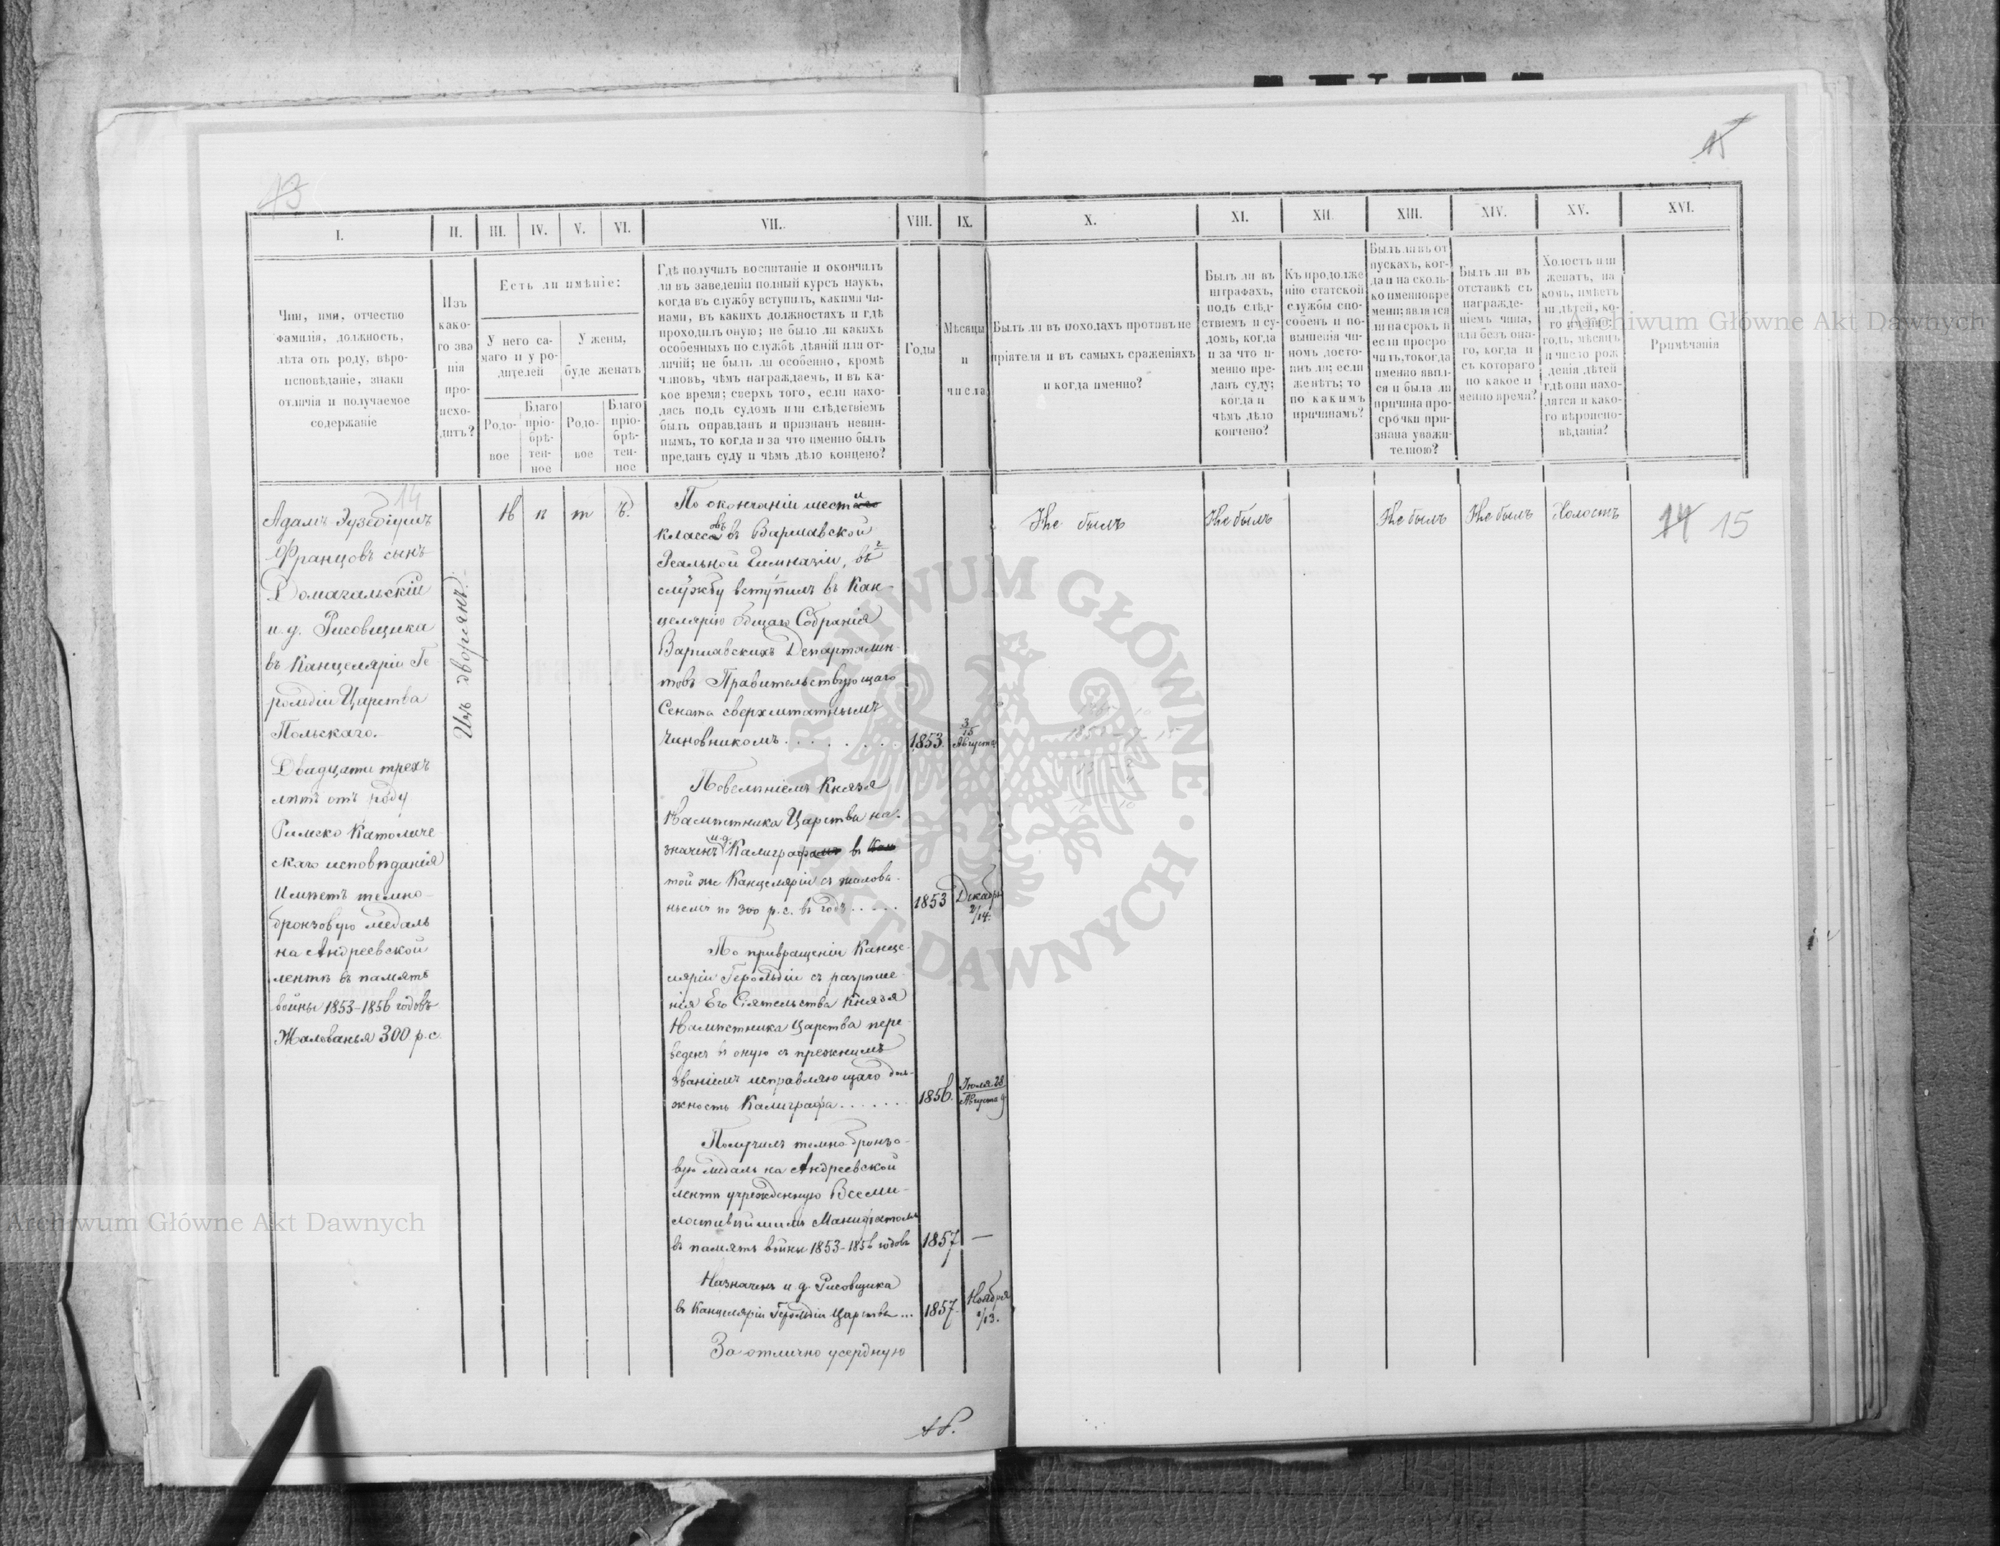 13
15
I.
II.
III.
IV.
V.
VI.
VII.
VIII.
IX.
X.
XI.
XII.
XIII.
XIV.
XV.
XVI.
Чин, имя, отчество
фамилія, должность,
лѣта отъ роду, вѣро-
исповѣданіе, знаки
отличія и получаемое
содержаніе
Изъ
како-
го зва
нія
про-
исхо-
дитъ?
Есть ли имѣніе:
У него са-
маго и у ро-
дителей
У жены,
буде женатъ
Родо-
вое
Благо
пріо-
брѣ-
тен-
ное
Родо-
вое
Благо
пріо-
брѣ-
тен-
ное
Гдѣ получилъ воспитаніе и окончилъ
ли въ заведеніи полный курсъ наукъ,
когда въ службу вступилъ, какими чи-
нами, въ какихъ должностяхъ и гдѣ
проходилъ оную; не было ли какихъ
особенныхъ по службѣ дѣяній или от-
личій; не былъ ли особенно, кромѣ
чиновъ, чѣмъ награждаемъ, и въ ка-
кое время; сверхъ того, если нахо-
дясь подъ судомъ или слѣдствіемъ
былъ оправданъ и признанъ невин-
нымъ, то когда и за что именно былъ
преданъ суду и чѣмъ дѣло концено?
Годы
Мѣсяцы
и
числа
Былъ ли въ походахъ противъ не
пріятеля и въ самыхъ сраженіяхъ
и когда именно?
Былъ ли въ
штрафахъ,
подъ слѣд-
ствіемъ и су-
домъ, когда
и за что и-
менно пре-
данъ суду;
когда и
чѣмъ дѣло
кончено?
Къ продолже
нію статской
службы спо-
собенъ и по-
вышенія чи-
номъ досто-
инъ ли; если
же нѣтъ; то
по какимъ
причинамъ?
Былъ ли въ от
пускахъ, ког-
да и на сколь-
ко именно вре
мени; явился
ли на срокъ и
если просро
чилъ, то когда
именно явил-
ся и была ли
причина про-
срочки при-
знана уважи-
телною?
Былъ ли въ
отставкѣ съ
награжде-
ніемъ чина,
или безъ она-
го, когда и
съ котораго
по какое и-
менно время?
Холостъ или
женатъ, на
комъ, имѣетъ
ли дѣтей, ко-
го именно;
годъ, мѣсяцъ
и число рож
денія дѣтей
гдѣ они нахо-
дятся и како-
го вѣроиспо-
вѣданія?
Примѣчанія
14
Адамъ-Эузебіушъ
Францовъ сынъ
Домагальскій
и. д. Рисовщика
въ Канцеляріи Ге
рольдіи Царства
Польскаго.
Двадцати трехъ
лѣтъ отъ роду
Римско Католиче
скаго исповѣданія
Имѣетъ темно-
бронзовую медаль
на Андреевской
лентѣ въ память
войны 1853-1856 годовъ
Жалованья 300 р.с.
Изъ дворянъ.
Н ѣ т ъ.
По окончаніи шести
классовъ въ Варшавской
Реальной Гимназіи, въ
службу вступилъ въ Кан-
целярію Общаго Собранія
Варшавскихъ Департамен-
товъ Правительствующаго
Сената сверхштатнымъ
чиновникомъ........
1853.
3/15
Августа
Повелѣніемъ Князя
Намѣстника Царства на-
значенъ и.д. Калиграфа въ
той же Канцеляріи съ жалова-
ньемъ по 300 р.с. въ годъ.....
1853
Декабря
2/14.
По превращеніи Канце-
ляріи Герольдіи съ разрѣше-
нія Его Сіятельства Князя
Намѣстника Царства пере-
веденъ въ оную съ прежнимъ
званіемъ исправляющаго дол-
жность Калиграфа.......
1856.
Іюля 28
Августа 9
Получилъ темно бронзо-
вую медаль на Андреевской
лентѣ учрежденную Всеми-
лостивѣйшимъ Манифестомъ
въ память войны 1853-1856 годовъ
1857
—
Назначенъ и. д. Рисовщика
въ Канцеляріи Герольдіи Царства...
1857.
Ноября
1/13.
За отлично усердную
Не былъ
Не былъ
Не былъ
Не былъ
Холостъ
14 15
ARCHIWUM GŁÓWNE AKT DAWNYCH
Archiwum Główne Akt Dawnych
Archiwum Główne Akt Dawnych